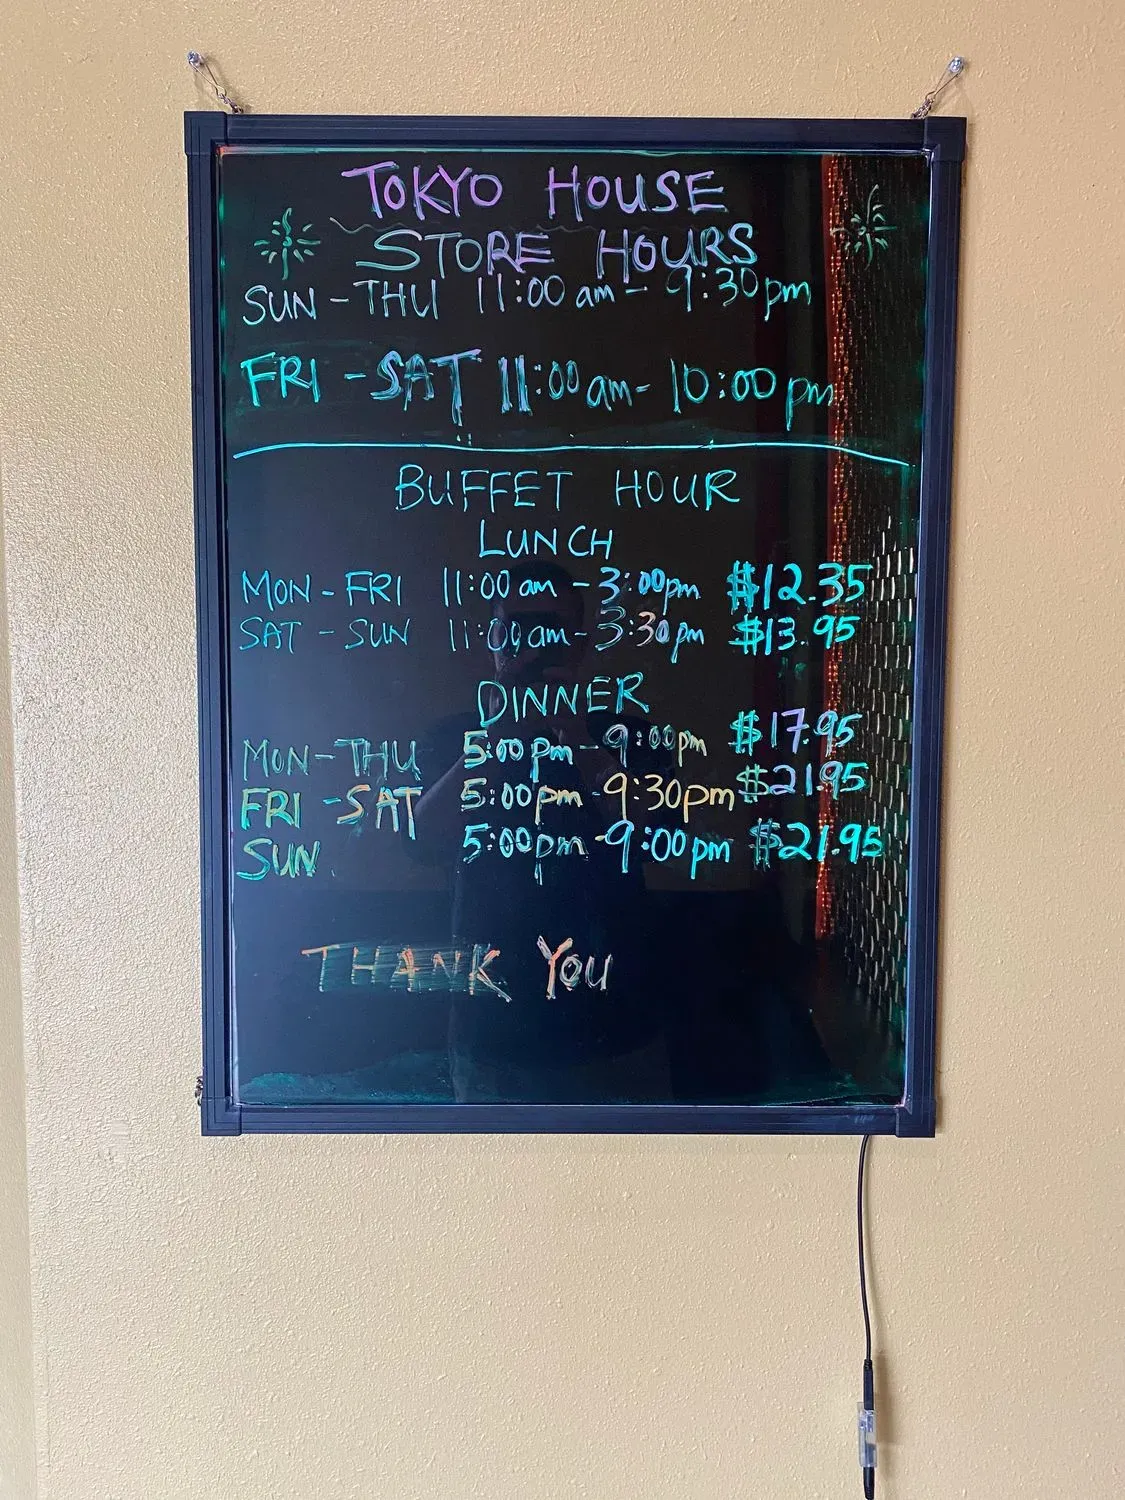 TOKYO HOUSE
STORE HOURS
SUN - THU 11:00 am - 9:30 pm
FRI - SAT 11:00 am - 10:00 pm
BUFFET HOUR
LUNCH
MON - FRI 11:00 am - 3:00 pm $12.35
SAT - SUN 11:00 am - 3:30 pm $13.95
DINNER
MON - THU 5:00 pm - 9:00 pm $17.95
FRI - SAT 5:00 pm - 9:30 pm $21.95
SUN 5:00 pm - 9:00 pm $21.95
THANK YOU